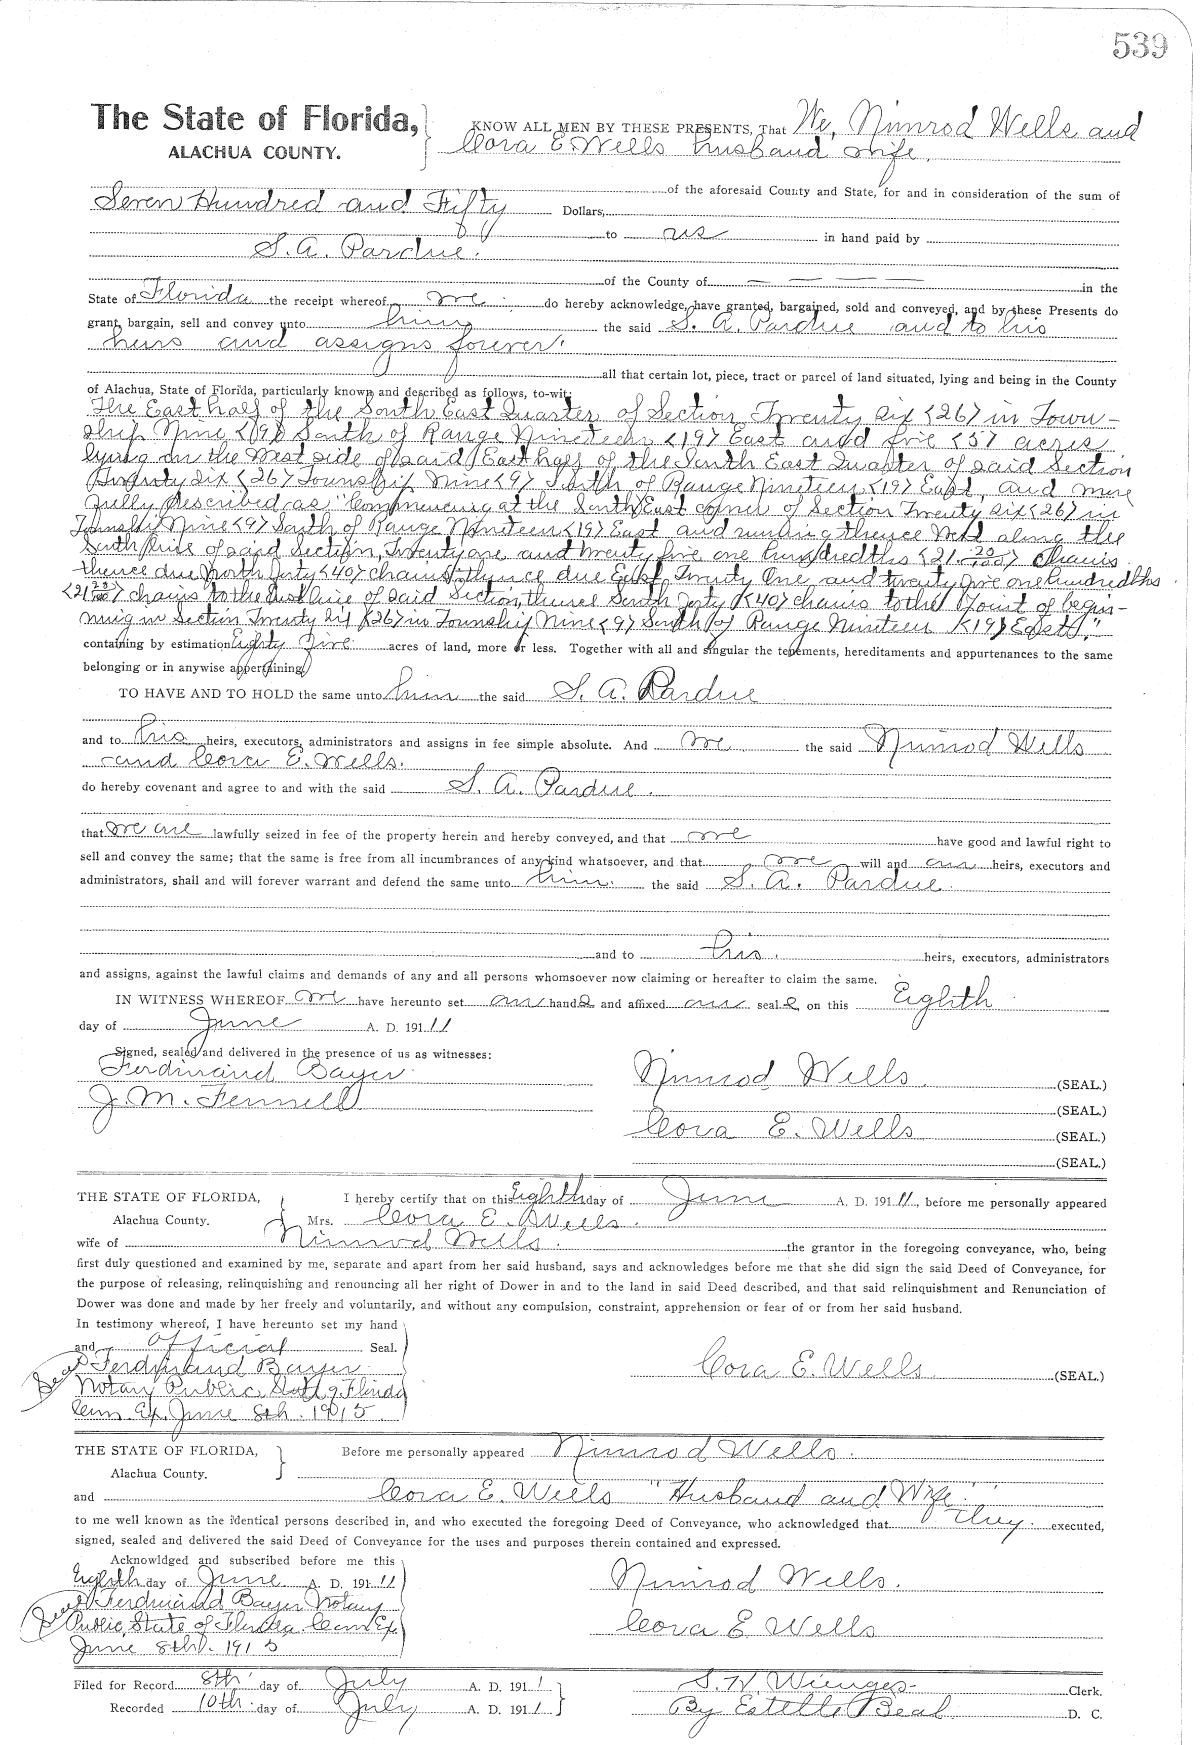 539
The State of Florida,
ALACHUA COUNTY.
KNOW ALL MEN BY THESE PRESENTS, That We, Nimrod Wells and
Cora E Wells husband wife.
of the aforesaid County and State, for and in consideration of the sum of
Seven Hundred and Fifty Dollars,
to us in hand paid by
S. A. Pardue.
of the County of — — — — in the
State of Florida the receipt whereof we do hereby acknowledge, have granted, bargained, sold and conveyed, and by these Presents do
grant, bargain, sell and convey unto him the said S. A. Pardue and to his
heirs and assigns forever.
all that certain lot, piece, tract or parcel of land situated, lying and being in the County
of Alachua, State of Florida, particularly known and described as follows, to-wit:
The East half of the South East Quarter of Section Twenty six <26> in Town-
ship Nine <9> South of Range Nineteen <19> East and five <5> acres
lying on the West side of said East half of the South East Quarter of said Section
Twenty six <26> Township Nine <9> South of Range Nineteen <19> East, and more
fully described as "Commencing at the South East corner of Section Twenty six <26> in
Township Nine <9> South of Range Nineteen <19> East and running thence West along the
South line of said Section, Twenty one and twenty five one hundredths <21 /100> chains
thence due North forty <40> chains thence due East Twenty One and twenty five one hundredths
<21 /100> chains to the East line of said Section, thence South forty <40> chains to the Point of begin-
ning in Section Twenty six <26> in Township Nine <9> South of Range Nineteen <19> East."
containing by estimation Eighty Five acres of land, more or less. Together with all and singular the tenements, hereditaments and appurtenances to the same
belonging or in anywise appertaining
TO HAVE AND TO HOLD the same unto him the said S. A. Pardue
and to his heirs, executors, administrators and assigns in fee simple absolute. And we the said Nimrod Wells
and Cora E. Wells.
do hereby covenant and agree to and with the said S. A. Pardue.
that we are lawfully seized in fee of the property herein and hereby conveyed, and that we have good and lawful right to
sell and convey the same; that the same is free from all incumbrances of any kind whatsoever, and that we will and our heirs, executors and
administrators, shall and will forever warrant and defend the same unto him. the said S. A. Pardue.
and to his. heirs, executors, administrators
and assigns, against the lawful claims and demands of any and all persons whomsoever now claiming or hereafter to claim the same.
IN WITNESS WHEREOF we have hereunto set our hands and affixed our seals on this Eighth
day of June A. D. 191 11
Signed, sealed and delivered in the presence of us as witnesses:
Ferdinand Bayer
J. M. Fennell
Nimrod Wells. (SEAL.)
(SEAL.)
Cora E. Wells (SEAL.)
(SEAL.)
THE STATE OF FLORIDA,
Alachua County.
I hereby certify that on this Eighth day of June A. D. 191 11, before me personally appeared
Mrs. Cora E. Wells.
wife of Nimrod Wells. the grantor in the foregoing conveyance, who, being
first duly questioned and examined by me, separate and apart from her said husband, says and acknowledges before me that she did sign the said Deed of Conveyance, for
the purpose of releasing, relinquishing and renouncing all her right of Dower in and to the land in said Deed described, and that said relinquishment and Renunciation of
Dower was done and made by her freely and voluntarily, and without any compulsion, constraint, apprehension or fear of or from her said husband.
In testimony whereof, I have hereunto set my hand
and official Seal.
Seal Ferdinand Bayer
Notary Public, State of Florida
Com. Ex. June 8th. 1915
Cora E. Wells (SEAL.)
THE STATE OF FLORIDA,
Alachua County.
Before me personally appeared Nimrod Wells.
and Cora E. Wells "Husband and Wife."
to me well known as the identical persons described in, and who executed the foregoing Deed of Conveyance, who acknowledged that They executed,
signed, sealed and delivered the said Deed of Conveyance for the uses and purposes therein contained and expressed.
Acknowldged and subscribed before me this
Eighth day of June A. D. 191 11
Seal Ferdinand Bayer Notary
Public, State of Florida Com Ex.
June 8th. 1915
Nimrod Wells.
Cora E Wells
Filed for Record 8th day of July A. D. 191 1
Recorded 10th. day of July A. D. 191 1
S. H. Wienges Clerk.
By Estelle Beal. D. C.